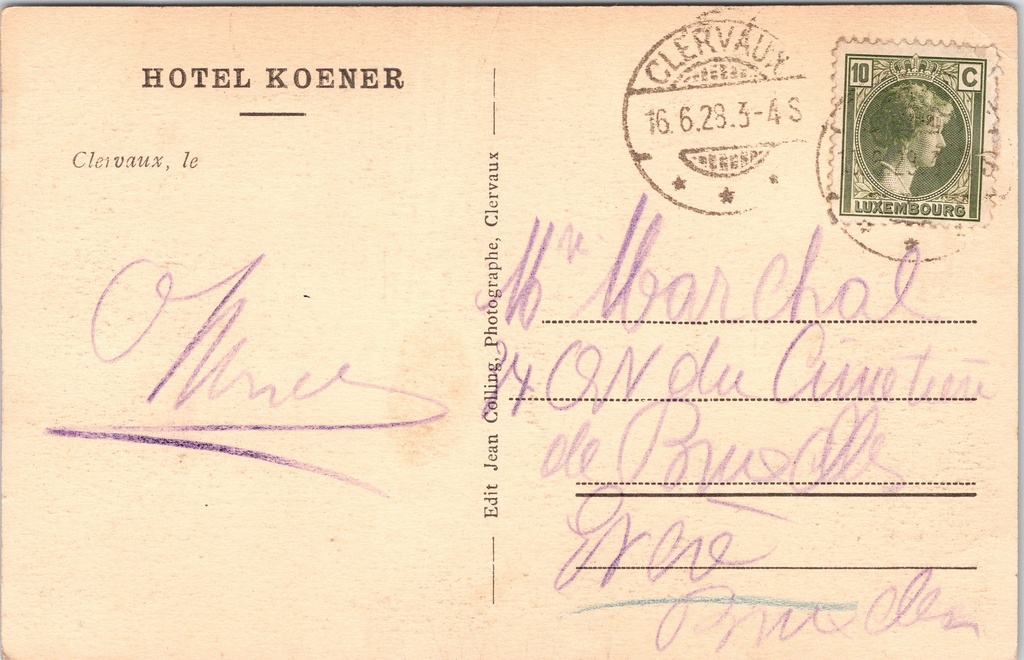 HOTEL KOENER
Clervaux, le
Edit Jean Colling, Photographe, Clervaux
CLERVAUX
16.6.28.3-4 S
10 C
LUXEMBOURG
Mr Marchal
24 du Cimetière
de Bruxelles
Evere
Bruxelles